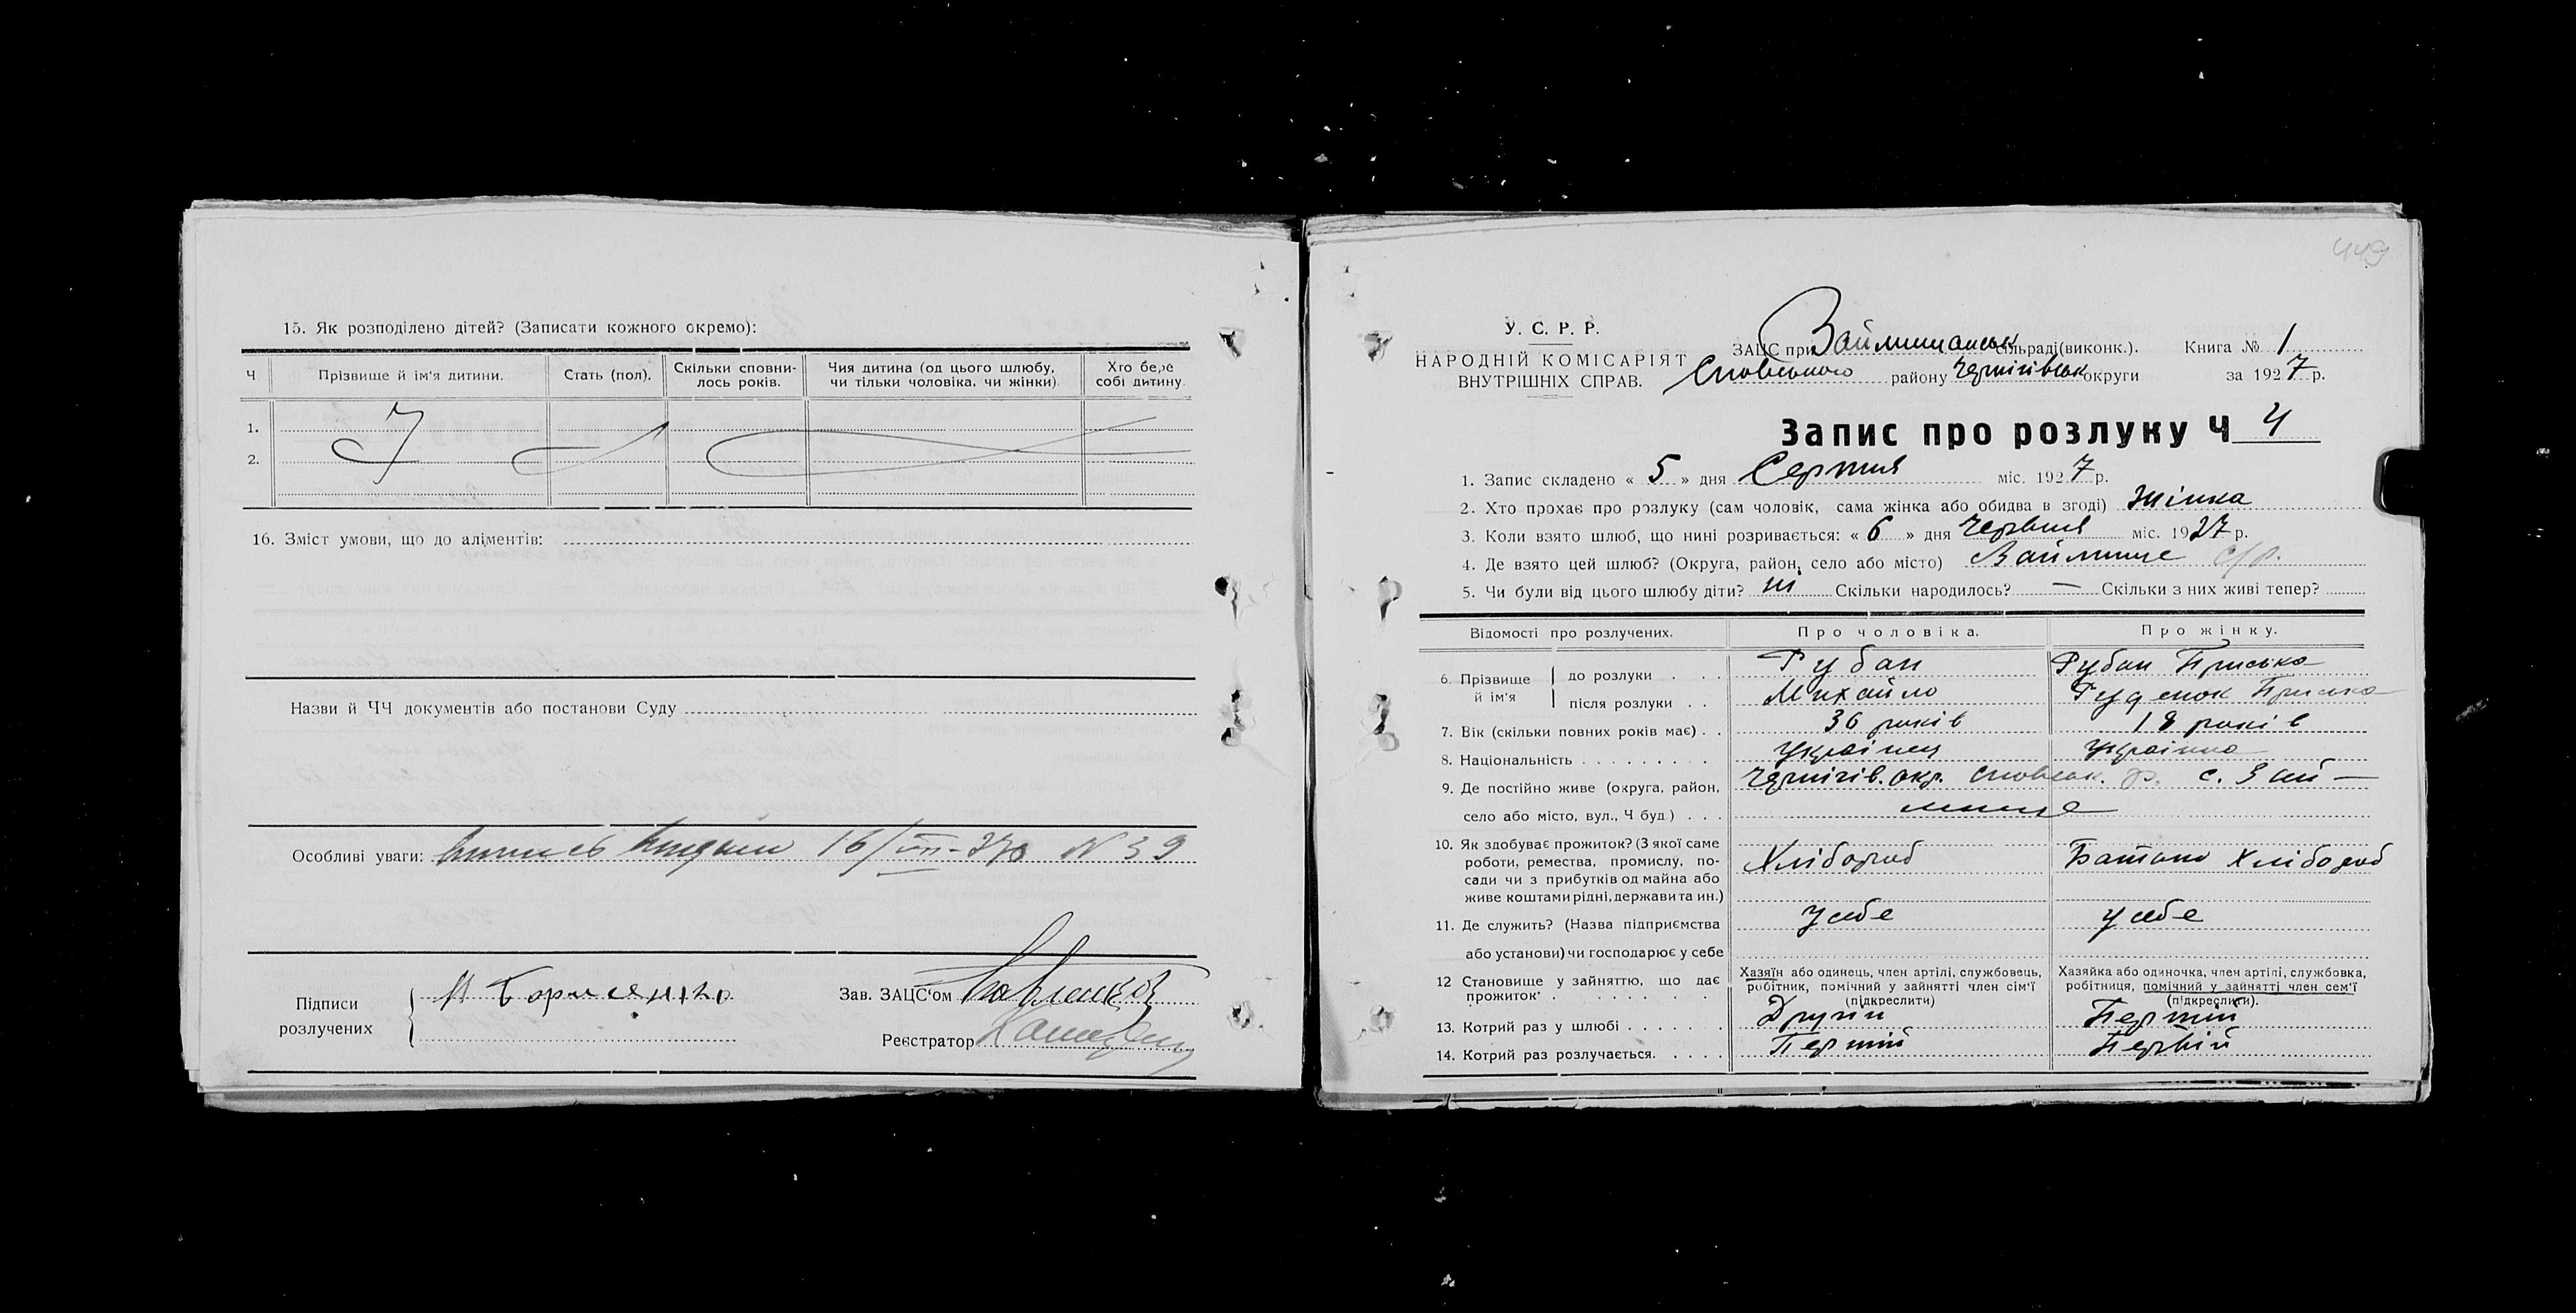 15. Як розподілено дітей? (Записати кожного окремо):
Ч Прізвище й ім'я дитини. Стать (пол). Скільки сповнилось років. Чия дитина (од цього шлюбу, чи тільки чоловіка, чи жінки) Хто бере собі дитину.
1.
2.
16. Зміст умови, що до аліментів:
Назви й ЧЧ документів або постанови Суду
Особливі уваги: 16/VII-27р N 39
Підписи розлучених
М Борисенко
Зав. ЗАЦС'ом Павленко
Реєстратор
449
У. С. Р. Р.
НАРОДНІЙ КОМІСАРІЯТ
ВНУТРІШНІХ СПРАВ.
ЗАЦС при Займищанськ сільраді (виконк.). Книга № 1
Сновського району Чернігівськ округи за 1927 р.
Запис про розлуку Ч 4
1. Запис складено « 5 » дня Серпня міс. 1927 р.
2. Хто прохає про розлуку (сам чоловік, сама жінка або обидва в згоді) Жінка
3. Коли взято шлюб, що нині розривається: « 6 » дня Червня міс. 1927 р.
4. Де взято цей шлюб? (Округа, район, село або місто) Займище с/р.
5. Чи були від цього шлюбу діти? ні Скільки народилось? — Скільки з них живі тепер?
Відомості про розлучених. Про чоловіка. Про жінку.
6. Прізвище й ім'я до розлуки Рубан Рубан Приська
після розлуки Михайло Приська
7. Вік (скільки повних років має) 36 років 18 років
8. Національність Українец Українка
9. Де постійно живе (округа, район, Чернігів. окр. Сновськ. р. с. Зай-
село або місто, вул., Ч буд.) мище
10. Як здобуває прожиток? (З якої саме
роботи, ремества, промислу, по- Хлібороб Батько Хлібороб
сади чи з прибутків од майна або
живе коштами рідні, держави та ин.)
11. Де служить? (Назва підприємства у себе у себе
або установи) чи господарює у себе
12 Становище у зайняттю, що дає прожиток Хазяїн або одинець, член артілі, службовець, робітник, помічний у зайнятті член сім'ї (підкреслити) Хазяйка або одиночка, член артілі, службовка, робітниця, помічний у зайнятті член сем'ї (підкреслити).
13. Котрий раз у шлюбі Другий Перший
14. Котрий раз розлучається. Перший Первій